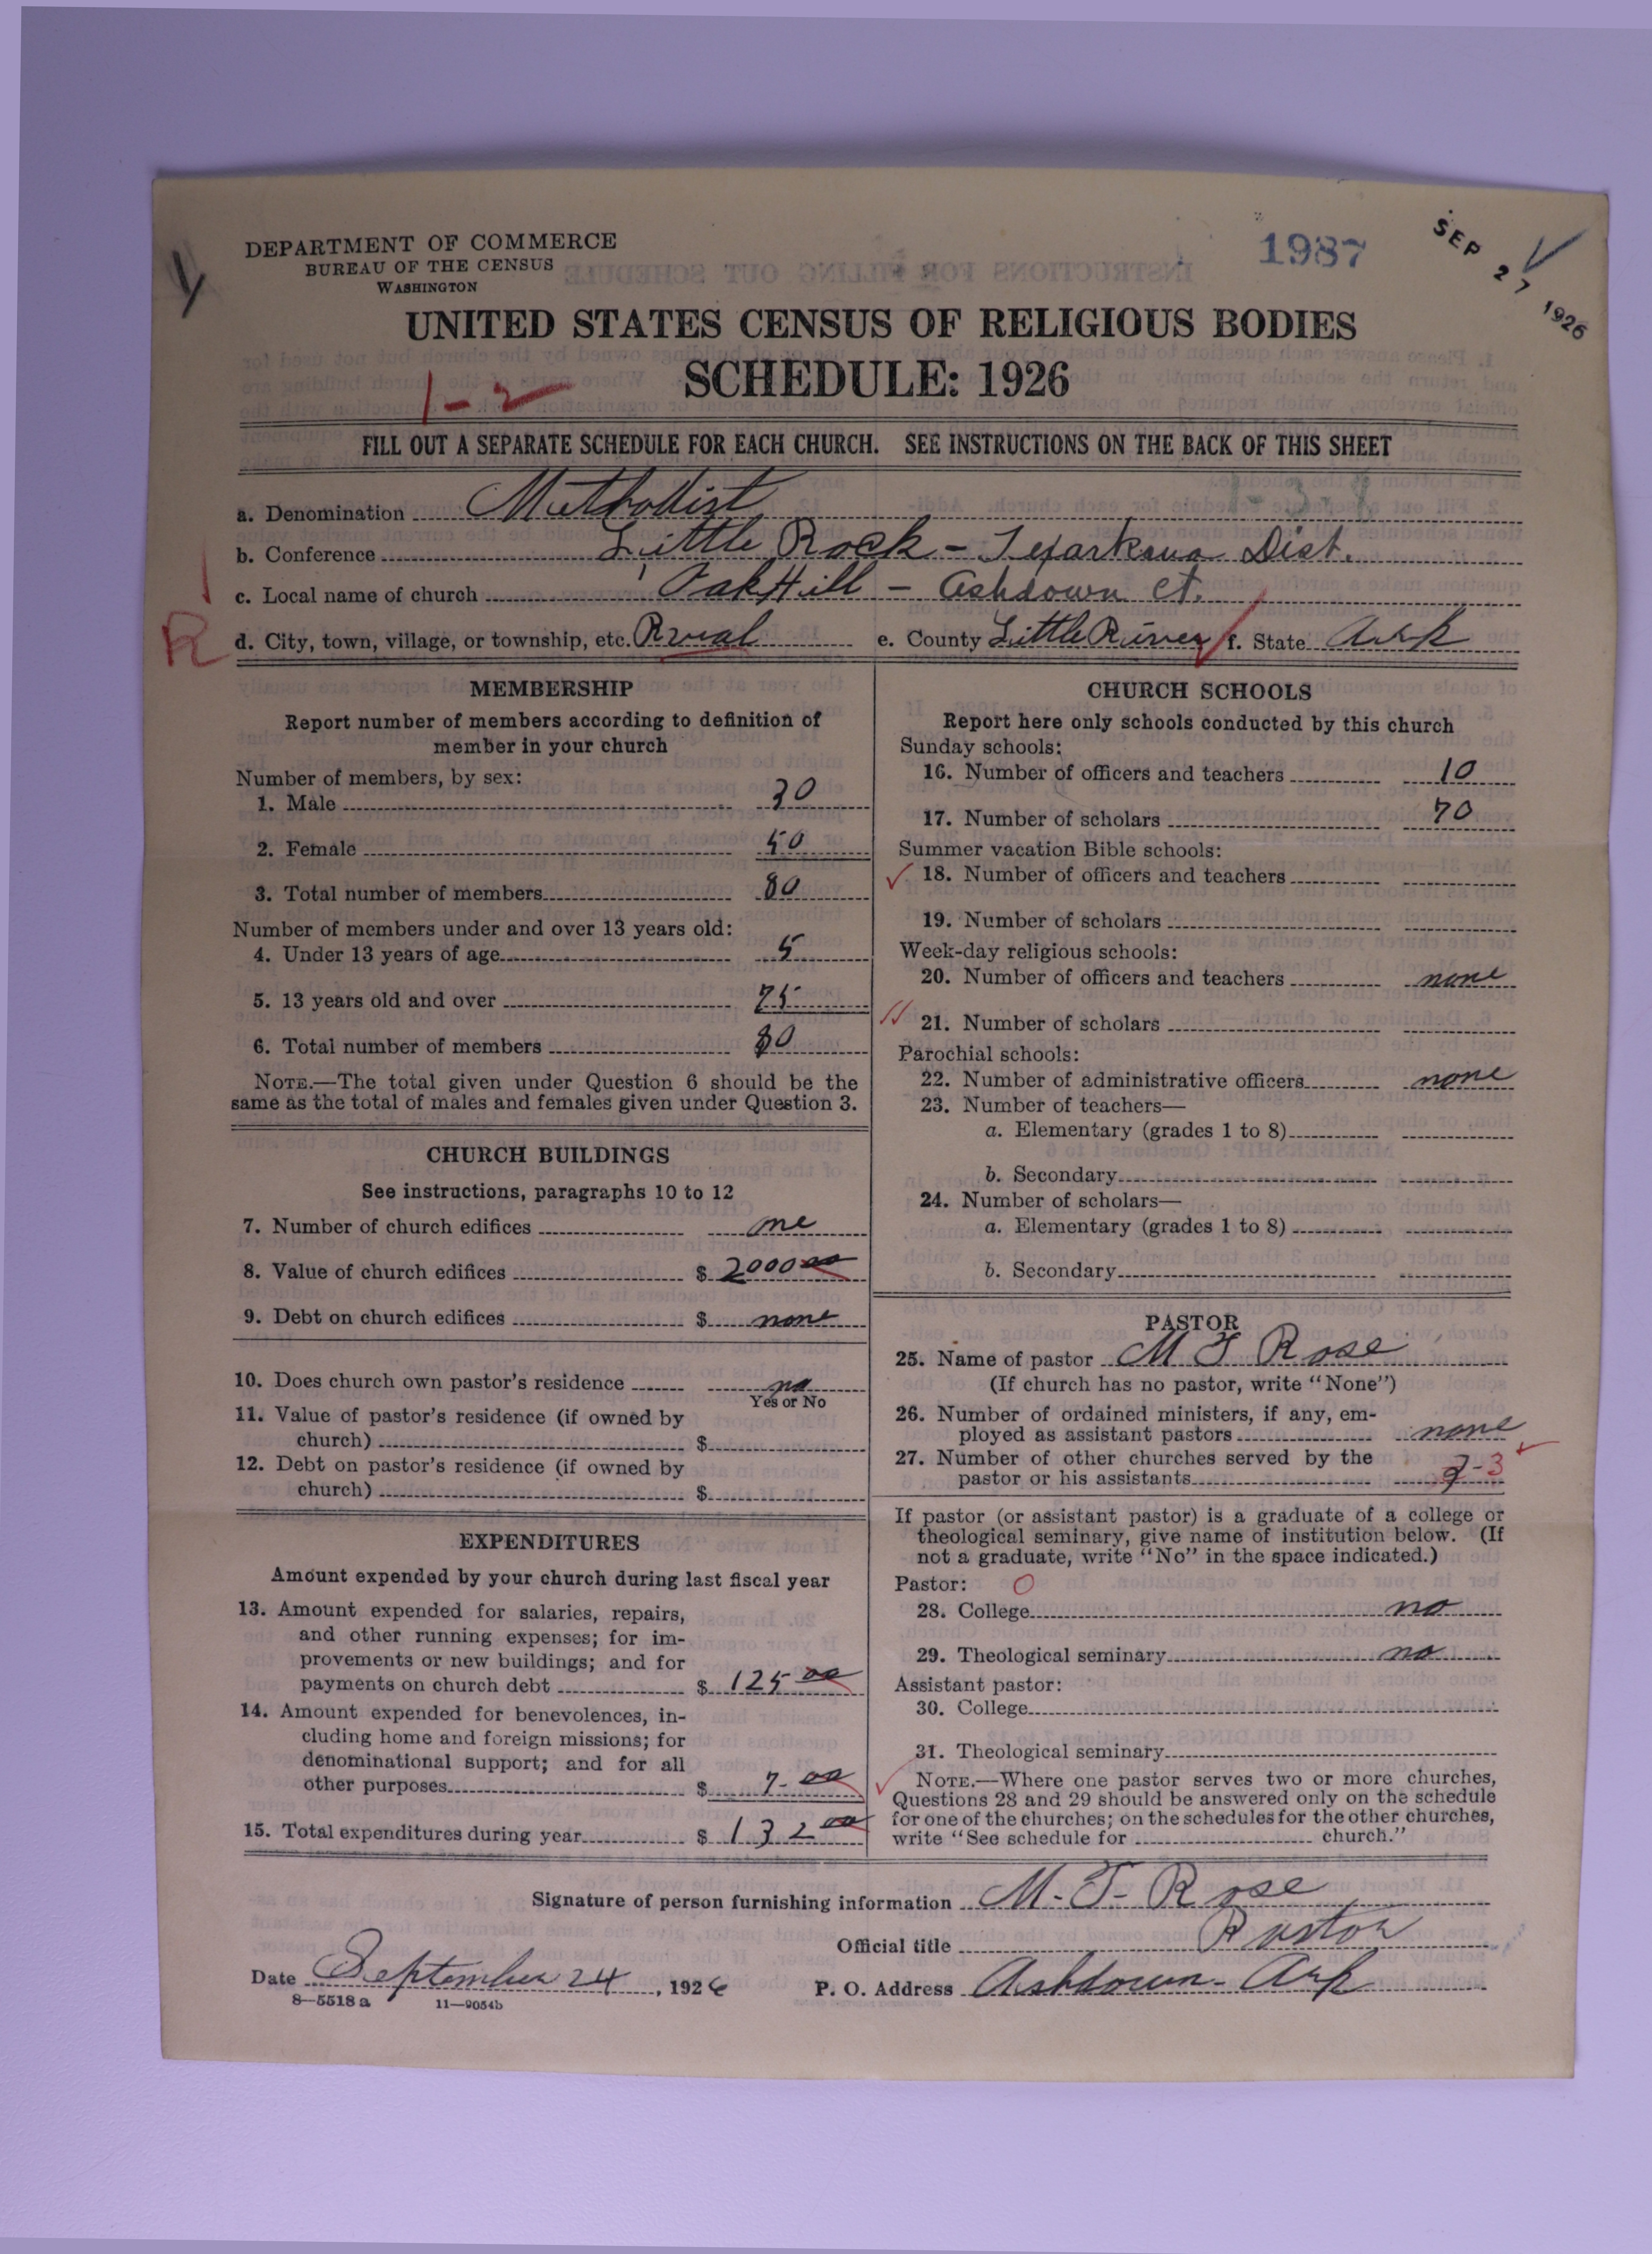 DEPARTMENT OF COMMERCE
BUREAU OF THE CENSUS
WASHINGTON
1987
SEP 27 1926
UNITED STATES CENSUS OF RELIGIOUS BODIES
SCHEDULE: 1926
1-2
FILL OUT A SEPARATE SCHEDULE FOR EACH CHURCH. SEE INSTRUCTIONS ON THE BACK OF THIS SHEET
1-3-8
a. Denomination Methodist
b. Conference Little Rock - Texarkana Dist.
c. Local name of church Oak Hill - Ashdown Ct.
R
d. City, town, village, or township, etc. Rural e. County Little River f. State Ark
MEMBERSHIP
Report number of members according to definition of
member in your church
Number of members, by sex:
1. Male 30
2. Female 50
3. Total number of members 80
Number of members under and over 13 years old:
4. Under 13 years of age 5
5. 13 years old and over 75
6. Total number of members 80
NOTE.—The total given under Question 6 should be the
same as the total of males and females given under Question 3.
CHURCH BUILDINGS
See instructions, paragraphs 10 to 12
7. Number of church edifices one
8. Value of church edifices $ 2000 00
9. Debt on church edifices $ none
10. Does church own pastor's residence no
Yes or No
11. Value of pastor's residence (if owned by
church) $
12. Debt on pastor's residence (if owned by
church) $
EXPENDITURES
Amount expended by your church during last fiscal year
13. Amount expended for salaries, repairs,
and other running expenses; for im-
provements or new buildings; and for
payments on church debt $ 125 00
14. Amount expended for benevolences, in-
cluding home and foreign missions; for
denominational support; and for all
other purposes $ 7- 00
15. Total expenditures during year $ 132 00
CHURCH SCHOOLS
Report here only schools conducted by this church
Sunday schools:
16. Number of officers and teachers 10
17. Number of scholars 70
Summer vacation Bible schools:
18. Number of officers and teachers
19. Number of scholars
Week-day religious schools:
20. Number of officers and teachers none
21. Number of scholars
Parochial schools:
22. Number of administrative officers none
23. Number of teachers—
a. Elementary (grades 1 to 8)
b. Secondary
24. Number of scholars—
a. Elementary (grades 1 to 8)
b. Secondary
PASTOR
25. Name of pastor M T Rose
(If church has no pastor, write "None")
26. Number of ordained ministers, if any, em-
ployed as assistant pastors none
27. Number of other churches served by the
pastor or his assistants -3
If pastor (or assistant pastor) is a graduate of a college or
theological seminary, give name of institution below. (If
not a graduate, write "No" in the space indicated.)
Pastor: O
28. College no
29. Theological seminary no
Assistant pastor:
30. College
31. Theological seminary
NOTE.—Where one pastor serves two or more churches,
Questions 28 and 29 should be answered only on the schedule
for one of the churches; on the schedules for the other churches,
write "See schedule for church."
Signature of person furnishing information M. T. Rose
Official title Pastor
Date September 24, 1926 P. O. Address Ashdown- Ark
8—5518 a 11—9054b